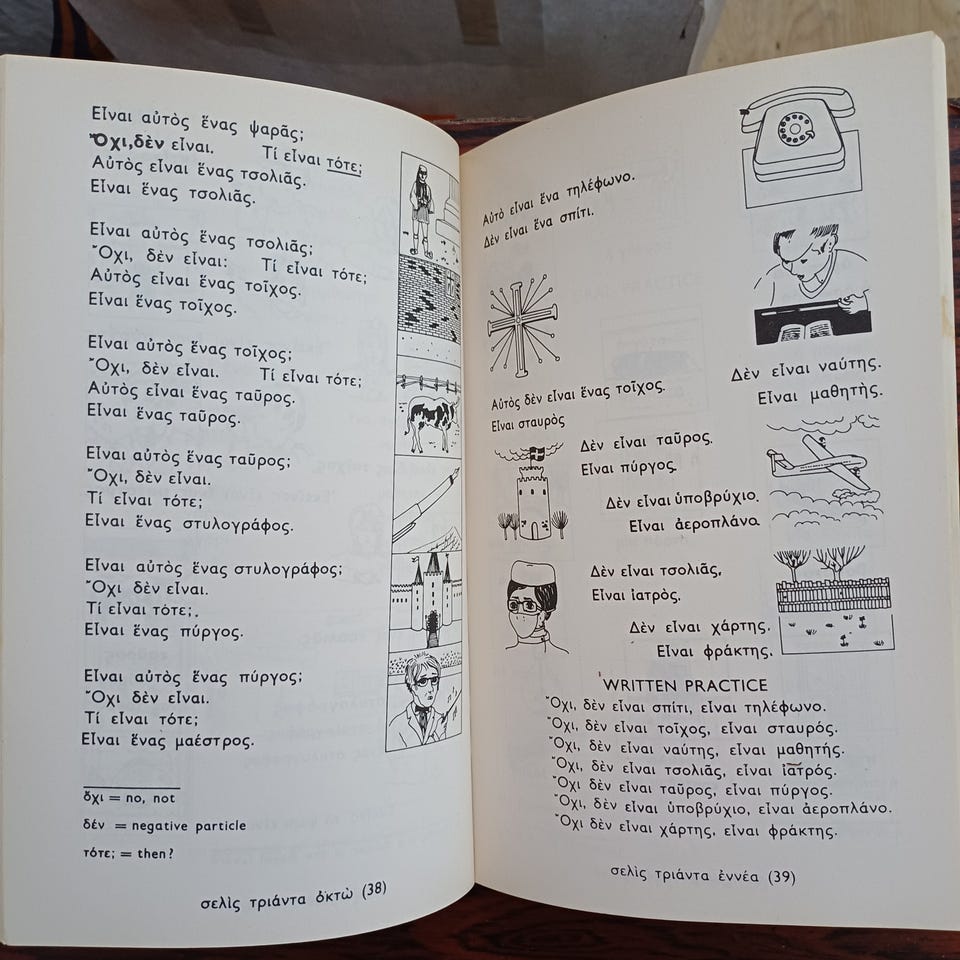 Εἶναι αὐτὸς ἕνας ψαρᾶς;
Ὄχι,δὲν εἶναι. Τί εἶναι τότε;
Αὐτὸς εἶναι ἕνας τσολιᾶς.
Εἶναι ἕνας τσολιᾶς.
Εἶναι αὐτὸς ἕνας τσολιᾶς;
Ὄχι, δὲν εἶναι: Τί εἶναι τότε;
Αὐτὸς εἶναι ἕνας τοῖχος.
Εἶναι ἕνας τοῖχος.
Εἶναι αὐτὸς ἕνας τοῖχος;
Ὄχι, δὲν εἶναι. Τί εἶναι τότε;
Αὐτὸς εἶναι ἕνας ταῦρος.
Εἶναι ἕνας ταῦρος.
Εἶναι αὐτὸς ἕνας ταῦρος;
Ὄχι, δὲν εἶναι.
Τί εἶναι τότε;
Εἶναι ἕνας στυλογράφος.
Εἶναι αὐτὸς ἕνας στυλογράφος;
Ὄχι δὲν εἶναι.
Τί εἶναι τότε;.
Εἶναι ἕνας πύργος.
Εἶναι αὐτὸς ἕνας πύργος;
Ὄχι δὲν εἶναι.
Τί εἶναι τότε;
Εἶναι ἕνας μαέστρος.
ὄχι = no, not
δέν = negative particle
τότε; = then?
σελὶς τριάντα ὀκτὼ (38)
Αὐτὸ εἶναι ἕνα τηλέφωνο.
Δὲν εἶναι ἕνα σπίτι.
Δὲν εἶναι ναύτης.
Εἶναι μαθητής.
Αὐτὸς δὲν εἶναι ἕνας τοῖχος.
Εἶναι σταυρὸς
Δὲν εἶναι ταῦρος.
Εἶναι πύργος.
Δὲν εἶναι ὑποβρύχιο.
Εἶναι ἀεροπλάνο.
Δὲν εἶναι τσολιᾶς,
Εἶναι ἰατρὸς.
Δὲν εἶναι χάρτης.
Εἶναι φράκτης.
WRITTEN PRACTICE
Ὄχι, δὲν εἶναι σπίτι, εἶναι τηλέφωνο.
Ὄχι, δὲν εἶναι τοῖχος, εἶναι σταυρός.
Ὄχι, δὲν εἶναι ναύτης, εἶναι μαθητής.
Ὄχι, δὲν εἶναι τσολιᾶς, εἶναι ἰατρός.
Ὄχι δὲν εἶναι ταῦρος, εἶναι πύργος.
Ὄχι, δὲν εἶναι ὑποβρύχιο, εἶναι ἀεροπλάνο.
Ὄχι δὲν εἶναι χάρτης, εἶναι φράκτης.
σελὶς τριάντα ἐννέα (39)